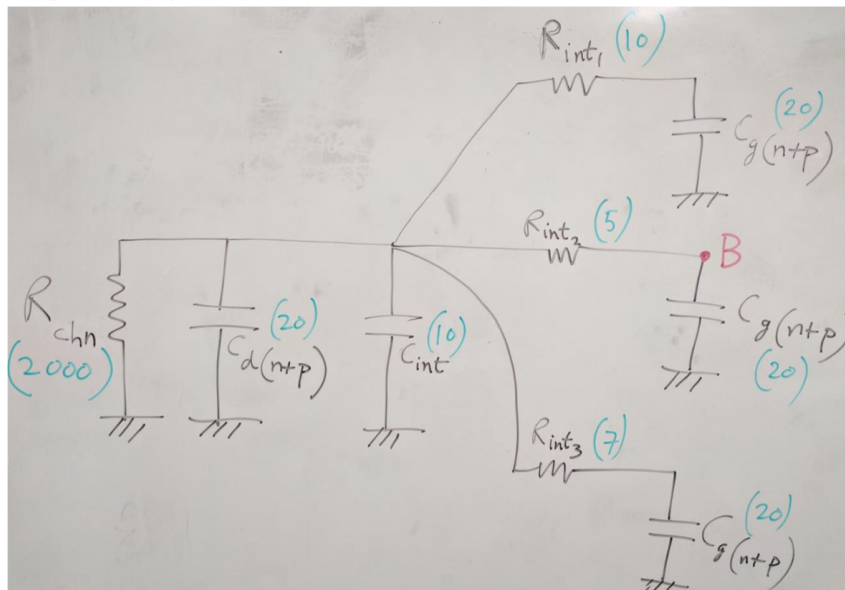 R int₁ (10)
(20)
C g(n+p)
R int₂ (5)
B
C g(n+p)
(20)
R chn
(2000)
(20)
C d(n+p)
(10)
C int
R int₃ (7)
(20)
C g(n+p)